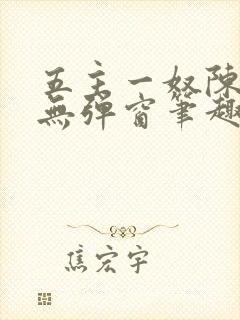 五主一奴陳
無彈窗筆趣
焦宏宇